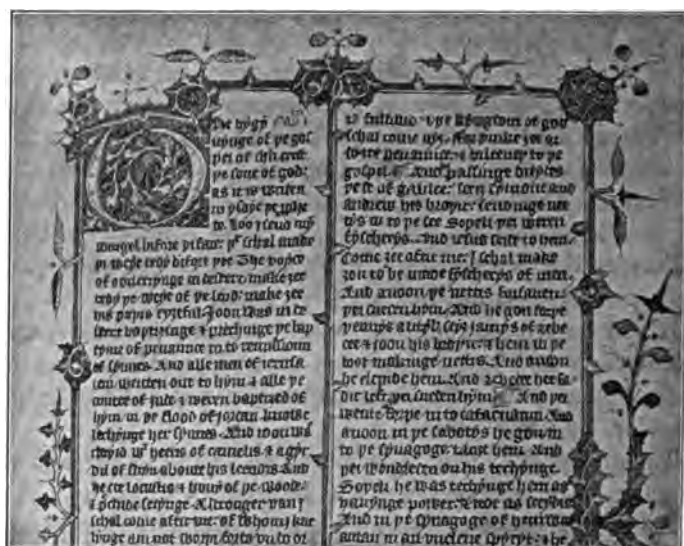 þe bygyn
nynge of þe gos
pel of
þe sone of god:
as it is writen
in ysaye þe
te. Loo I send myn
aungel bifore þi face: þt schal make
þi weye redy bifore þee The voyce
of oon cryynge in desert: make ȝee
redy þe weye of þe lord: make ȝee
his paþis ryȝtful. Joon was in de
sert baptisynge & prechynge þe bap
tyme of penaunce in to remissioun
of synnes. And alle men of ierusa
lem wenten out to hym & alle þe
cuntre of iude & weren baptised of
hym in þe flood of iordan knowle
chynge her synnes. And ioon was
cloþid wt heeris of camelis & a gyr
dil of skyn aboute his leendis And
he eet locustis & hony of þe wode:
& seiynge. A stronger þan I
schal come aftir me: of whom I kne
lynge am not worþi forto vndo or
is fulfillid & þe kyngdom of god
schal come nyȝ. forþinke ȝee or
penaunce: & bileeue to þe
gospel And passinge bisydes
þe see of galilee: seeȝ symount and
andrew his broþer: sendinge net
tis in to þe see Soþeli þei weren
fyscherys. And iesus seide to hem.
Come ȝee after me: I schal make
ȝou to be made fyscherys of men.
And anoon þe nettis forsaken:
þei sueden hym. And he gon forþe
a lityl: seeȝ iamys of zebe
dee & ioon his broþer: & hem in þe
boot makinge nettis. And anoon
he clepide hem. And zebedee her fa
dir left: þei sueden hym And þei
wente forþe in to cafarnaum And
anoon in þe sabotys he gon in
to þe synagoge: tauȝt hem And
þei wondreden on his techynge.
Soþeli he was techynge hem as
hauynge power: & not as
And in þe synagoge of hem was
a man in an vnclene spiryt: & he